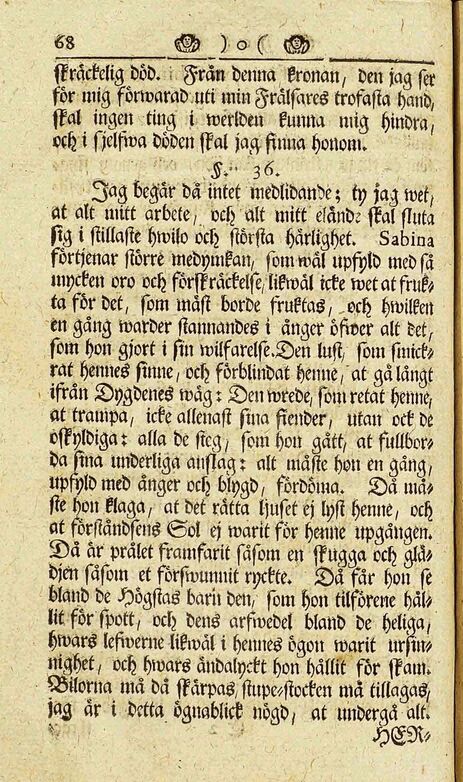 68 ) o (
skräckelig död. Från denna kronan, den jag ser
för mig förwarad uti min Frälsares trofasta hand,
skal ingen ting i werlden kunna mig hindra,
och i sjelfwa döden skal jag finna honom.
§. 36.
Jag begär då intet medlidande; ty jag wet,
at alt mitt arbete, och alt mitt elände skal sluta
sig i stillaste hwilo och största härlighet. Sabina
förtjenar större medymkan, som wäl upfyld med så
mycken oro och förskräckelse, likwäl icke wet at fruk-
ta för det, som mäst borde fruktas, och hwilken
en gång warder stannandes i ånger öfwer alt det,
som hon gjort i sin wilfarelse. Den lust, som smick-
rat hennes sinne, och förblindat henne, at gå långt
ifrån Dygdenes wäg: Den wrede, som retat henne,
at trampa, icke allenast sina fiender, utan ock de
oskyldiga: alla de steg, som hon gått, at fullbor-
da sina underliga anslag: alt måste hon en gång,
upfyld med ånger och blygd, fördöma. Då må-
ste hon klaga, at det rätta ljuset ej lyst henne, och
at förståndsens Sol ej warit för henne upgången.
Då är prålet framfarit såsom en skugga och glä-
djen såsom et förswunnit ryckte. Då får hon se
bland de Högstas barn den, som hon tilförene häl-
lit för spott, och dens arfwedel bland de heliga,
hwars lefwerne likwäl i hennes ögon warit ursin-
nighet, och hwars ändalyckt hon hållit för skam.
Bilorna må då skärpas, stupe-stocken må tillagas,
jag är i detta ögnablick nögd, at undergå alt.
HER-